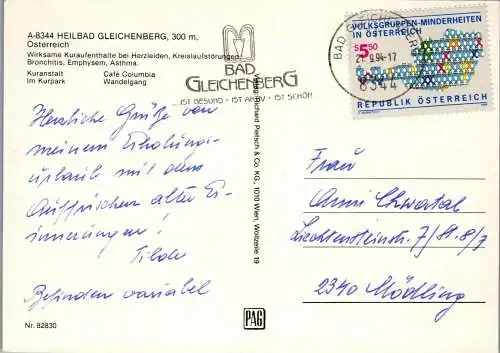 A-8344 HEILBAD GLEICHENBERG, 300 m,
Österreich
Wirksame Kuraufenthalte bei Herzleiden, Kreislaufstörungen,
Bronchitis, Emphysem, Asthma.
Kuranstalt Café Columbia
Im Kurpark Wandelgang
BAD
GLEICHENBERG
...IST GESUND · IST AKTIV · IST SCHÖN
BAD GLEICHENBERG
21.9.94-17
8344
VOLKSGRUPPEN-MINDERHEITEN
IN ÖSTERREICH
S 5.50
REPUBLIK ÖSTERREICH
Herzliche Grüße von
meinem Erholungs-
urlaub mit dem
Auffrischen alter Er-
innerungen!
Tilde
Befinden variabel
Nr. 82830
Verlag: Richard Pietsch & Co. KG, 1010 Wien, Wollzeile 19
PAG
Frau
Anni Chwatal
Liechtensteinstr. 7/St. 8/7
2340 Mödling